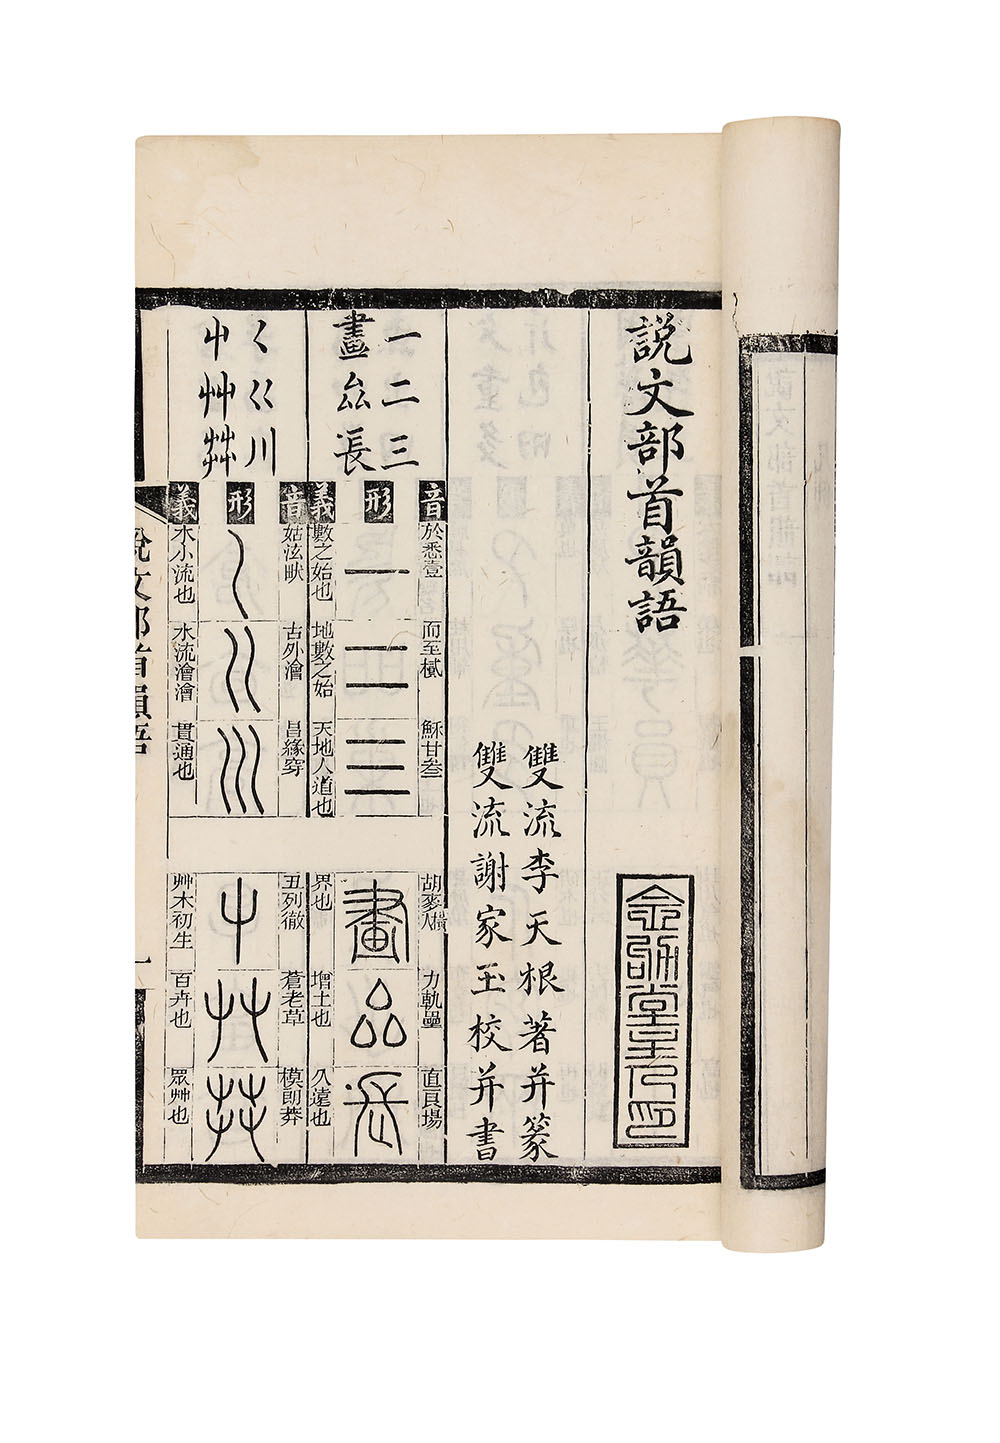 說文部首韻語
雙流李天根著并篆
雙流謝家玉校并書
一二三
畫厽長
音
於悉壹
而至樲
穌甘叁
形
一
二
三
義
數之始也
地數之始
天地人道也
胡麥
力軌壘
直良場
畫
厽
長
界也
增土也
久遠也
𡿨巜川
屮艸茻
音
姑泫畎
古外澮
昌緣穿
形
𡿨
巜
川
義
水小流也
水流澮澮
貫通也
丑列徹
蒼老草
模朗莽
屮
艸
茻
艸木初生
百卉也
眾艸也
說文部首韻語
一